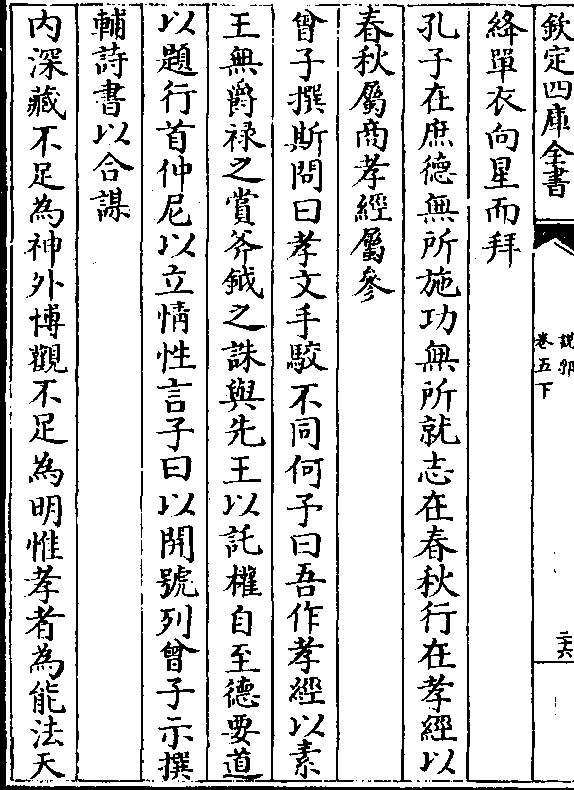 欽定四庫全書
說郛
卷五下
三六
絳單衣向星而拜
孔子在庶德無所施功無所就志在春秋行在孝經以
春秋屬商孝經屬參
曾子撰斯問曰孝文手駮不同何子曰吾作孝經以素
王無爵禄之賞斧鉞之誅與先王以託權自至德要道
以題行首仲尼以立情性言子曰以開號列曾子示撰
輔詩書以合謀
内深藏不足為神外博觀不足為明惟孝者為能法天